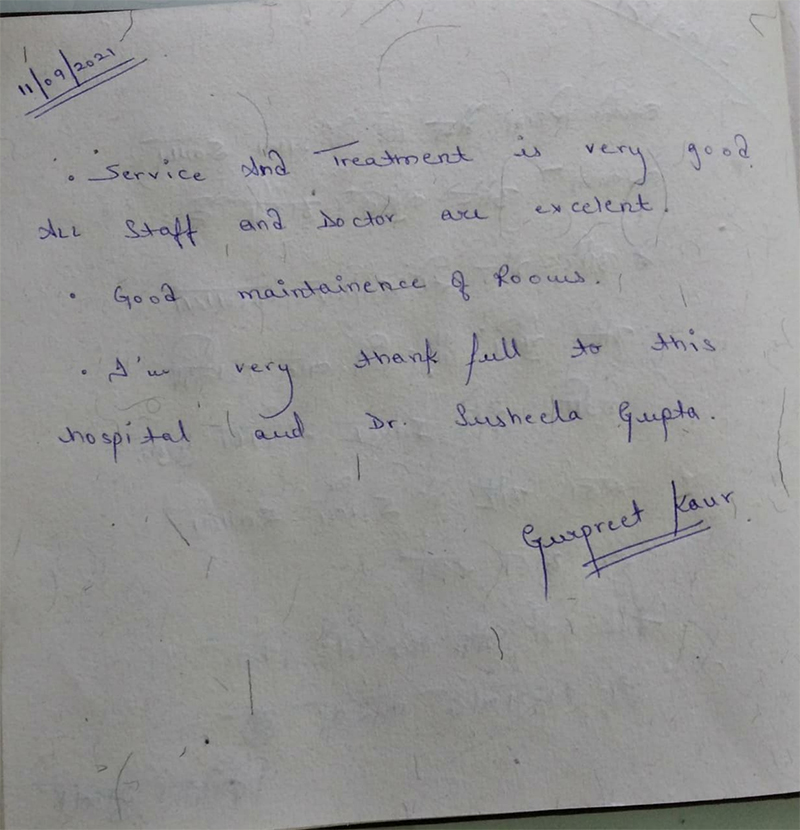 11/09/2021
• Service And Treatment is very good.
All Staff and Doctor are excelent.
• Good maintainence of Rooms.
• I'm very thank full to this
hospital and Dr. Susheela Gupta.
Gurpreet Kaur